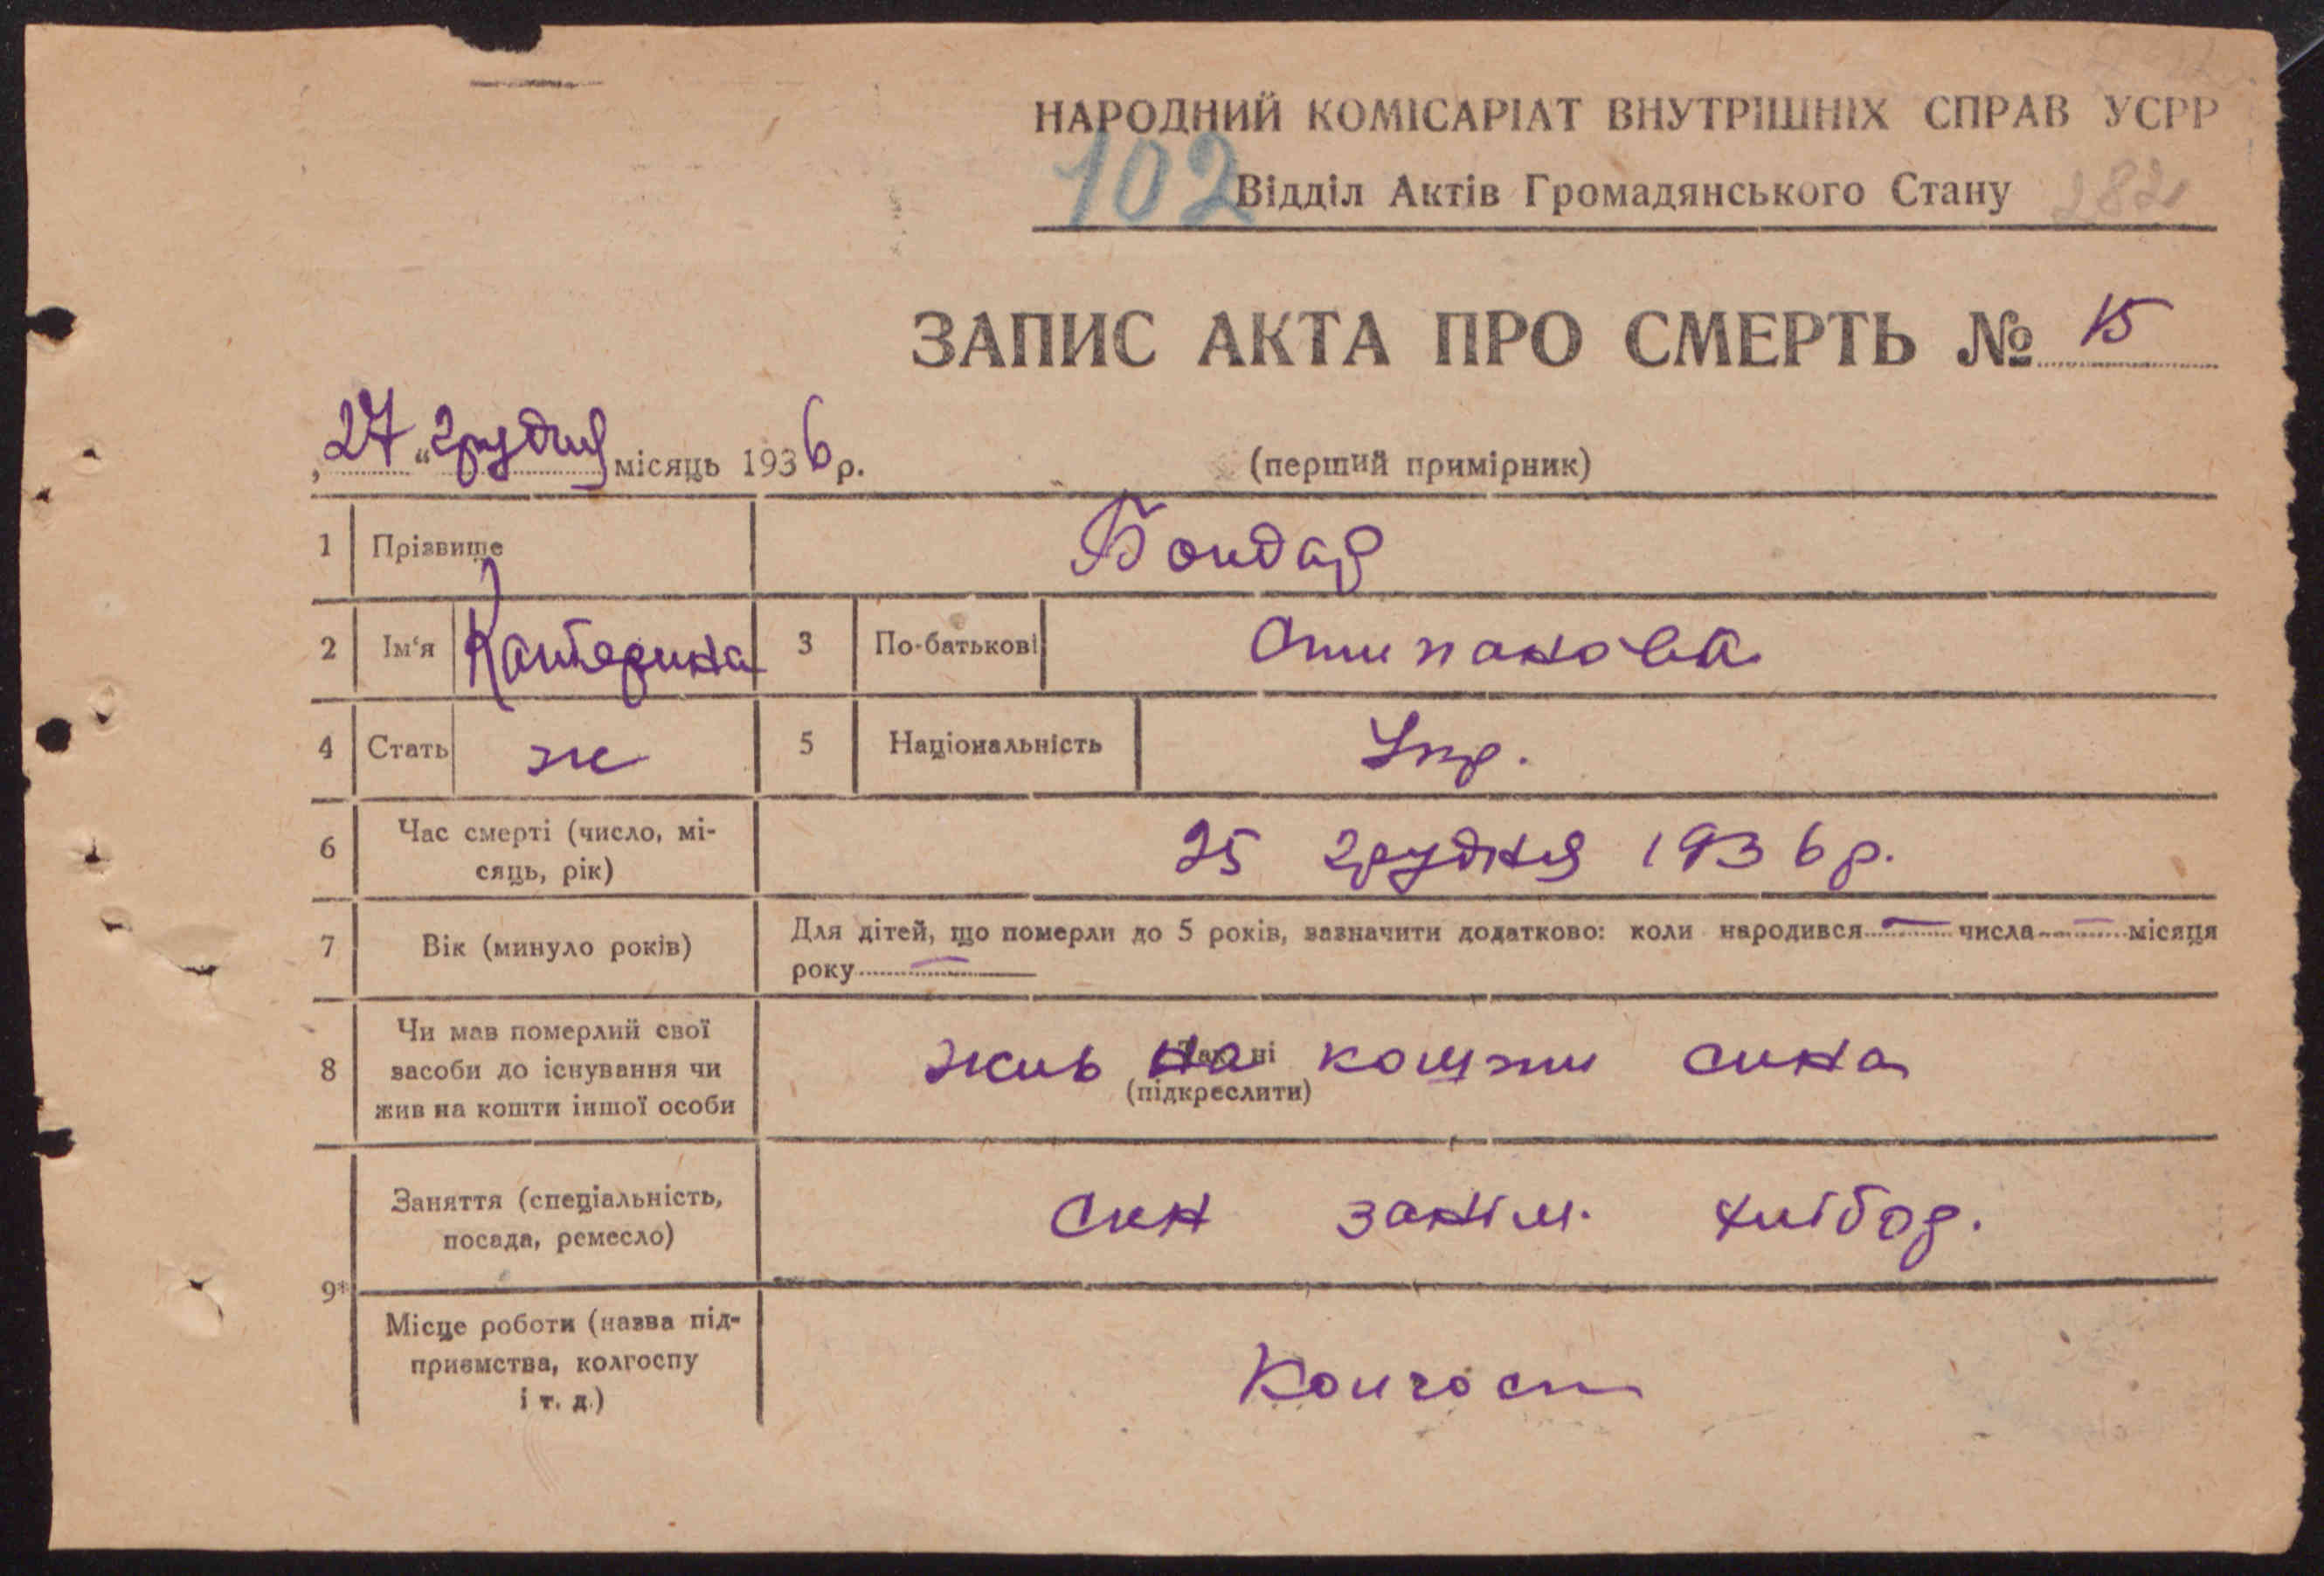 НАРОДНИЙ КОМІСАРІАТ ВНУТРІШНІХ СПРАВ УСРР
102 Відділ Актів Громадянського Стану 282
ЗАПИС АКТА ПРО СМЕРТЬ № 15
„27“ грудня місяць 1936 р.
(перший примірник)
1 Прізвище Бондар
2 Ім‘я Катерина 3 По-батькові Стипанова
4 Стать ж 5 Національність Укр.
6 Час смерті (число, мі-
сяць, рік) 25 грудня 1936 р.
7 Вік (минуло років) Для дітей, що померли до 5 років, зазначити додатково: коли народився — числа — місяця
року —
8 Чи мав померлий свої
засоби до існування чи
жив на кошти іншої особи
Так, ні
(підкреслити)
жив на кошти сина
9* Заняття (спеціальність,
посада, ремесло) син заним. хлібор.
Місце роботи (назва під-
приємства, колгоспу
і т. д.) Колгосп